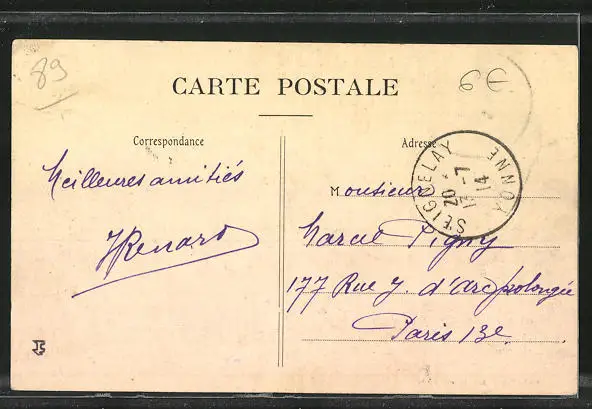 89
CARTE POSTALE
Correspondance
Adresse
SEIGNELAY
YONNE
20
13-7
14
Meilleures amitiés
Renard
Monsieur
Marcel Pigny
177 Rue J. d'Arc prolongée
Paris 13e